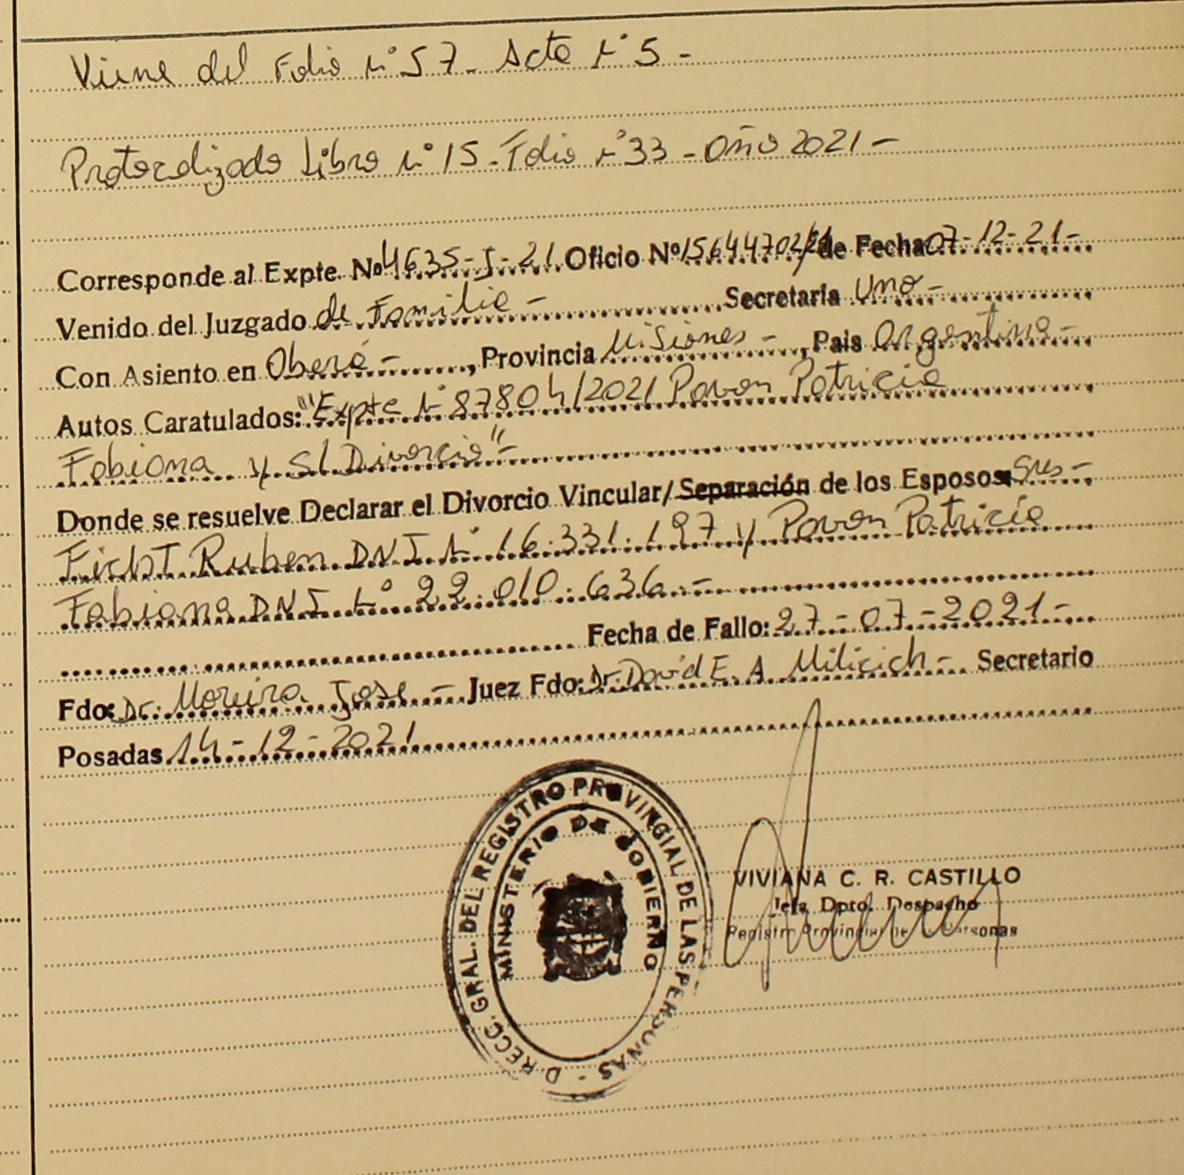 Viene del Folio N° 57 - Acta N° 5 -
Protocolizado Libro N° 15 - Folio N° 33 - Año 2021 -
Corresponde al Expte. Nº 4635-I-21 Oficio Nº 15644702/21 de Fecha 07-12-21-
Venido del Juzgado de Familia - Secretaria Uno -
Con Asiento en Oberá -, Provincia Misiones -, Pais Argentina -
Autos Caratulados: "Expte N° 87804/2021 Pavon Patricia
Fabiana y S/ Divorcio" -
Donde se resuelve Declarar el Divorcio Vincular/Separación de los Esposos Sres -
Ficht Ruben D.N.I. N° 16.331.197 y Pavon Patricia
Fabiana D.N.I. N° 22.010.636.-
Fecha de Fallo: 27-07-2021-
Fdo: Dr. Moreira Jose - Juez Fdo: Dr. David E. A. Milicich - Secretario
Posadas 14-12-2021
DRECC. GRAL. DEL REGISTRO PROVINCIAL DE LAS PERSONAS -
MINISTERIO DE GOBIERNO
VIVIANA C. R. CASTILLO
Jefa Dpto. Despacho
Registro Provincial de las Personas